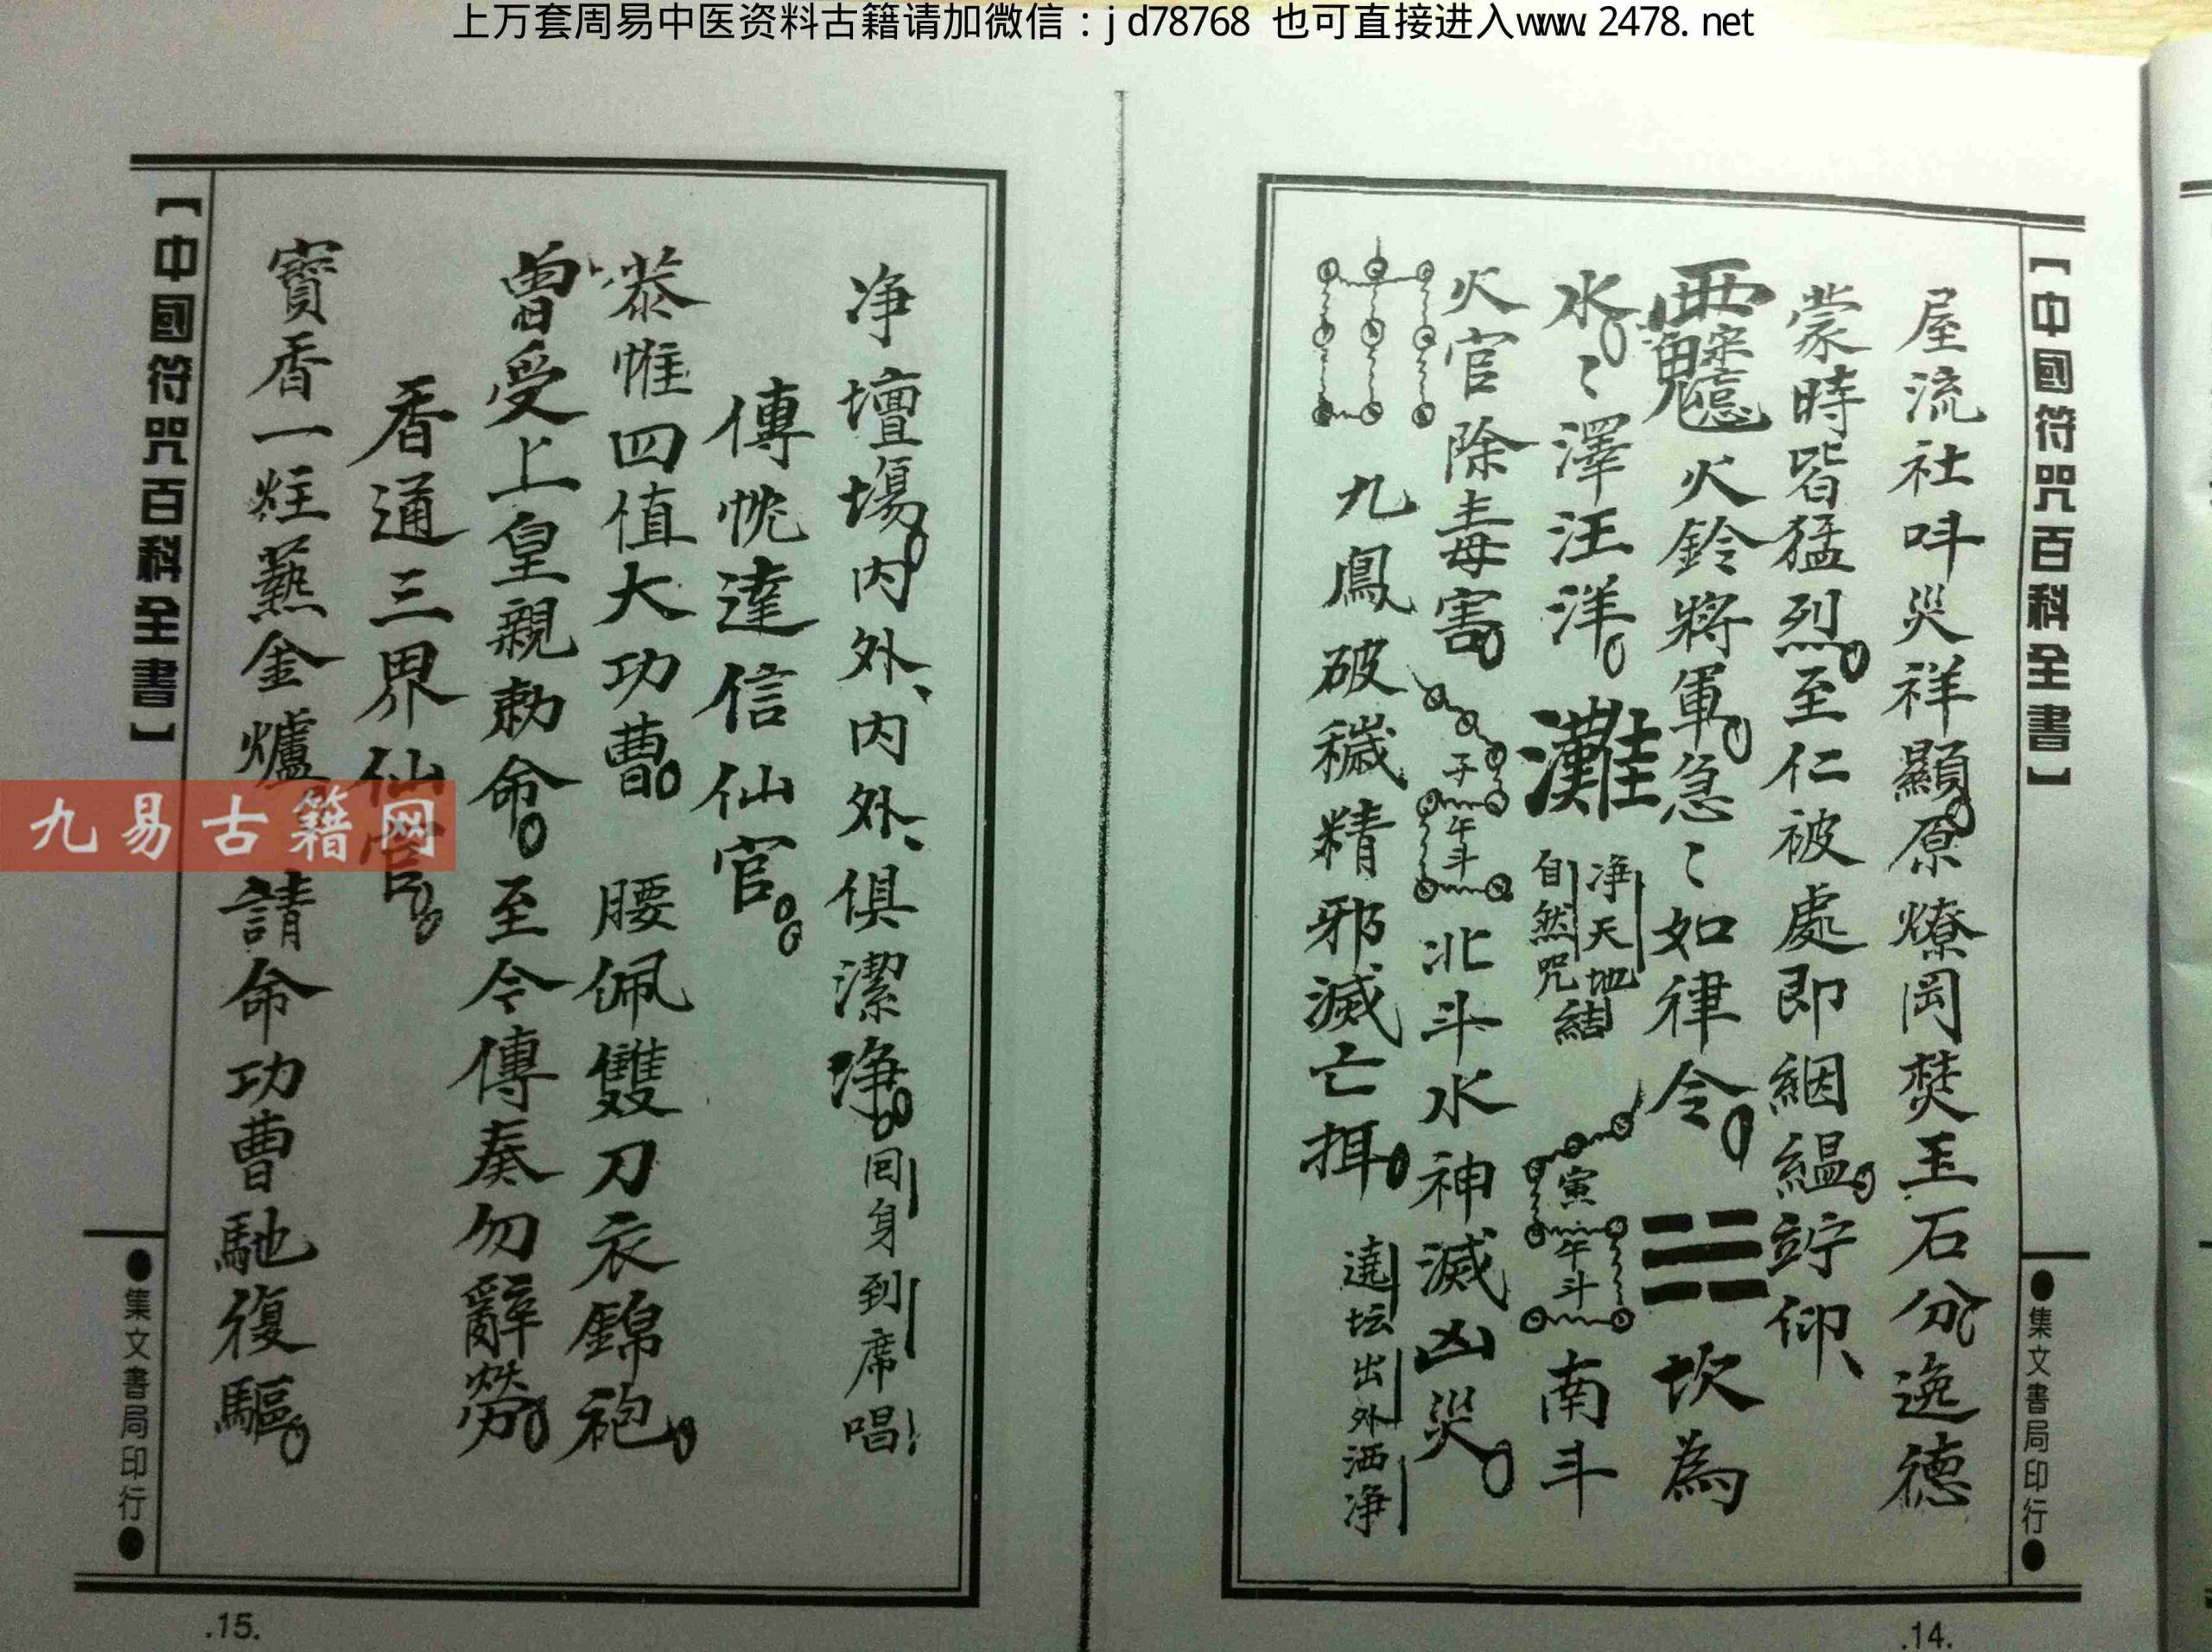 上万套周易中医资料古籍请加微信：jd78768 也可直接进入www.2478.net
【中國符咒百科全書】
●集文書局印行●
屋流社呌災祥顯原燎岡焚玉石分逸德
蒙時皆猛烈至仁被處即絪縕竚仰
火鈴將軍急〻如律令 坎為
水〻澤汪洋 灘 净天地自然咒結 寅午斗 南斗
火官除毒害 子午斗 北斗水神滅凶災
九鳳破穢精邪滅亡揖 遶坛出外洒净
.14.
净壇塲内外、内外、俱潔净 回身到席唱
傳忱達信仙官
恭惟四值大功曹 腰佩雙刀衣錦袍
曽受上皇親勅命 至令傳奏勿辭勞
香通三界仙官
寳香一炷爇金爐 請命功曹馳復驅
【中國符咒百科全書】
●集文書局印行●
.15.
九易古籍网